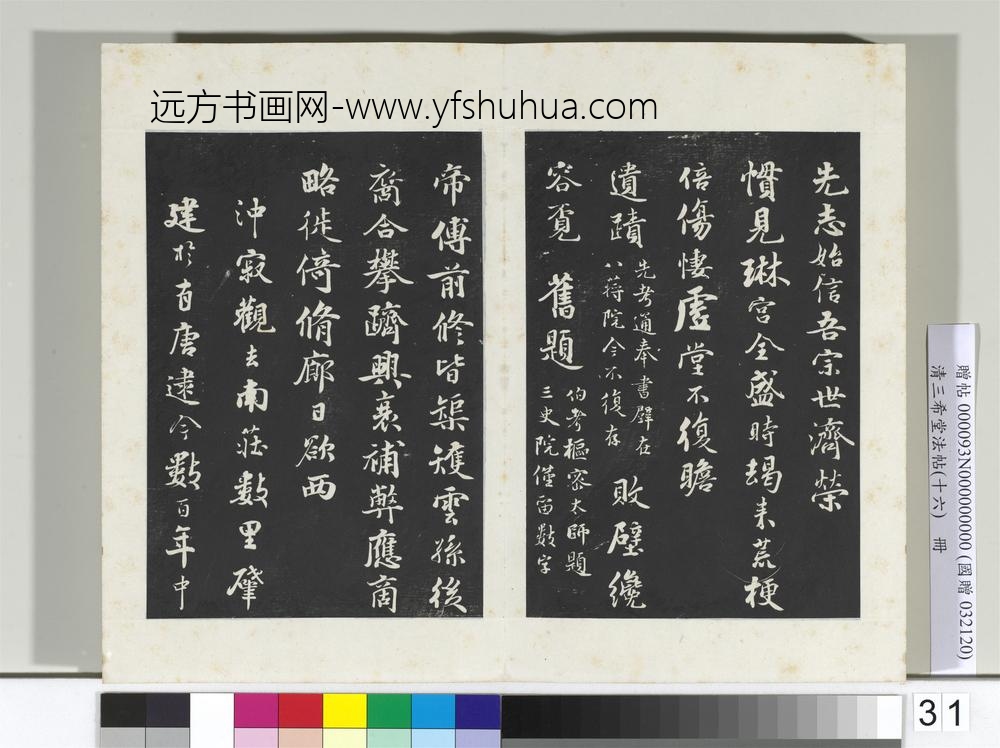 远方书画网-www.yfshuhua.com
先志始信吾宗世濟榮
慣見琳宮全盛時朅来荒梗
倍傷悽虛堂不復瞻
遺蹟
先考通奉書壁在
八蒋院今不復存
敗壁纔
容覓
舊題
伯考樞密太師題
三史院僅留數字
帝傅前修皆榘矱雲孫後
裔合攀躋興衰補弊應商
略徙倚脩廊日欲西
沖寂觀去南莊數里肇
建於有唐逮今數百年中
贈帖 000093N000000000 (國贈 032120)
清三希堂法帖(十六) 冊
31